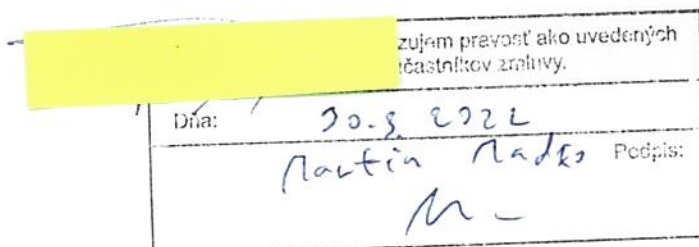 zujem pravosť ako uvedených
častníkov zmluvy.
Dňa: 30.9.2022
Martin Podpis: